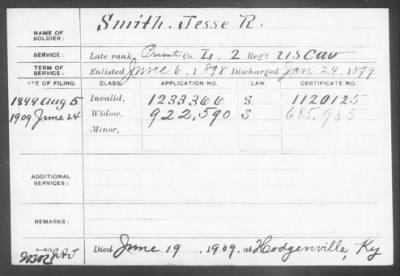 NAME OF SOLDIER: Smith, Jesse R.
SERVICE: Late rank, Privt Co. L, 2 Reg't U S Cav
TERM OF SERVICE: Enlisted June 6, 1898 Discharged Jan 24, 1899
DATE OF FILING. CLASS. APPLICATION NO. LAW. CERTIFICATE NO.
1899 Aug 5 Invalid, 1233366 S 1120125
1909 June 24 Widow, 922,590 S 685,985
Minor,
ADDITIONAL SERVICES:
REMARKS:
Died June 19, 1909, at Hodgenville, Ky